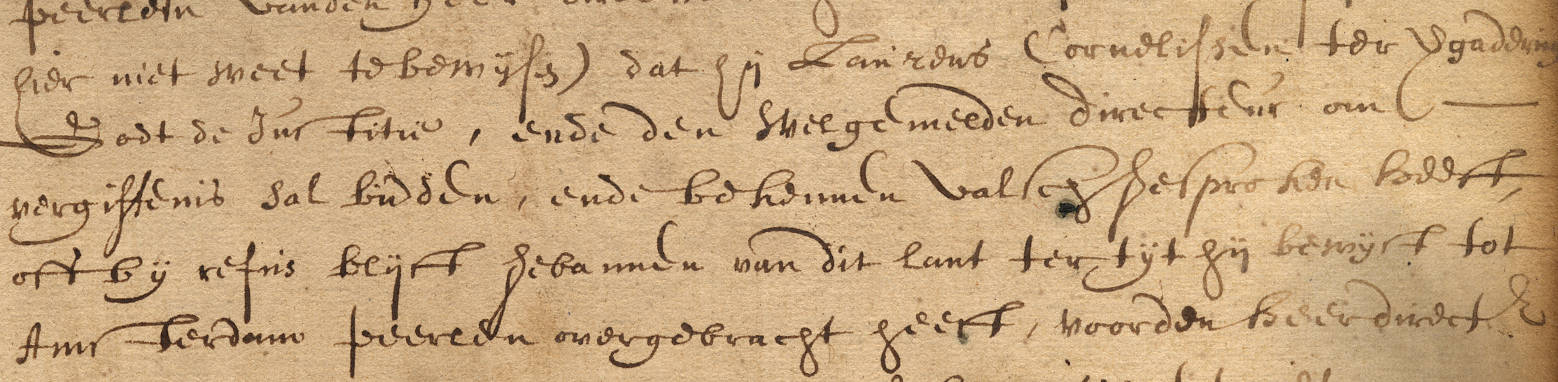 peerlen vanden heer
hier niet weet te bewysen) dat hij Laurens Cornelissen ter vgadering
Godt de Justitie, ende den welgemelden directeur om
vergiffenis sal bidden, ende bekennen valsch gesproken heeft,
oft by refus blyft gebannen van dit lant ter tyt hij bewyst tot
Amsterdam peerlen overgebracht heeft, voor den heer direct